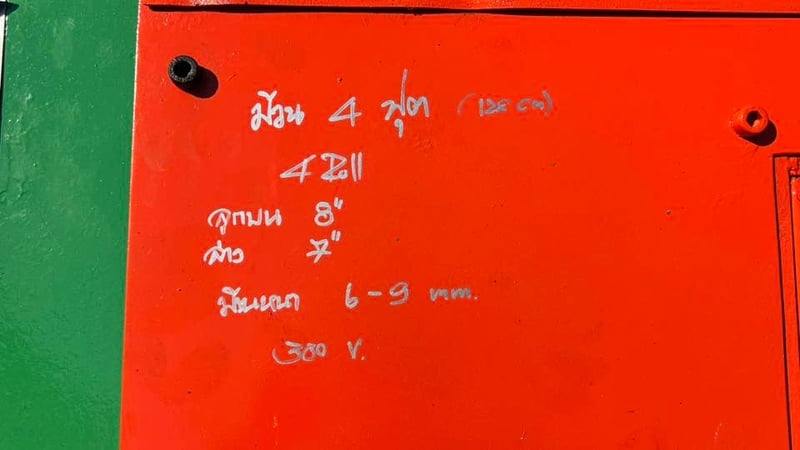 ม้วน 4 ฟุต (125 cm)
4 โรll
ลูกบน 8"
ล่าง 7"
ม้วนหนา 6-9 mm.
380 V.